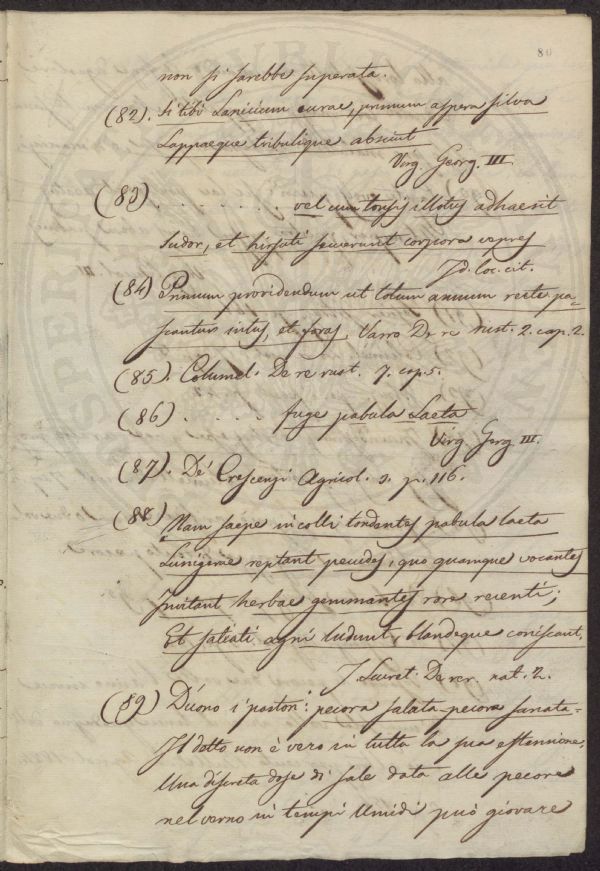 80
non si sarebbe superata.
(82). Si tibi Lanicium curae, primum aspera silva
Lappaeque tribulique absint
Virg Georg. III
(83) . . . . . . . . vel cum tonsis illotus adhaesit
Sudor, et hirsuti secuerunt corpora vepres
Id. loc. cit.
(84) Primum providendum ut totum annum recte pa-
scantur intus, et foras, Varro De re rust. 2. cap. 2.
(85). Columel. De re rust. 7. cap. 5.
(86) . . . . . fuge pabula Laeta
Virg Gerg III.
(87). De' Crescenzi Agricol. 3. p. 116.
(88) Nam saepe in colli tondentes pabula laeta
Lanigerae reptant pecudes, quo quamque vocantes
Invitant herbae gemmantes rore recenti;
Et satiati agni ludunt, blandeque coniscant,
T. Lucret. De rer. nat. 2.
(89) Dicono i pastori: pecora salata pecora sanata-
Il dotto non è vero in tutta la sua estensione,
Una discreta dose di sale data alle pecore
nel verno in tempi Umidi può giovare